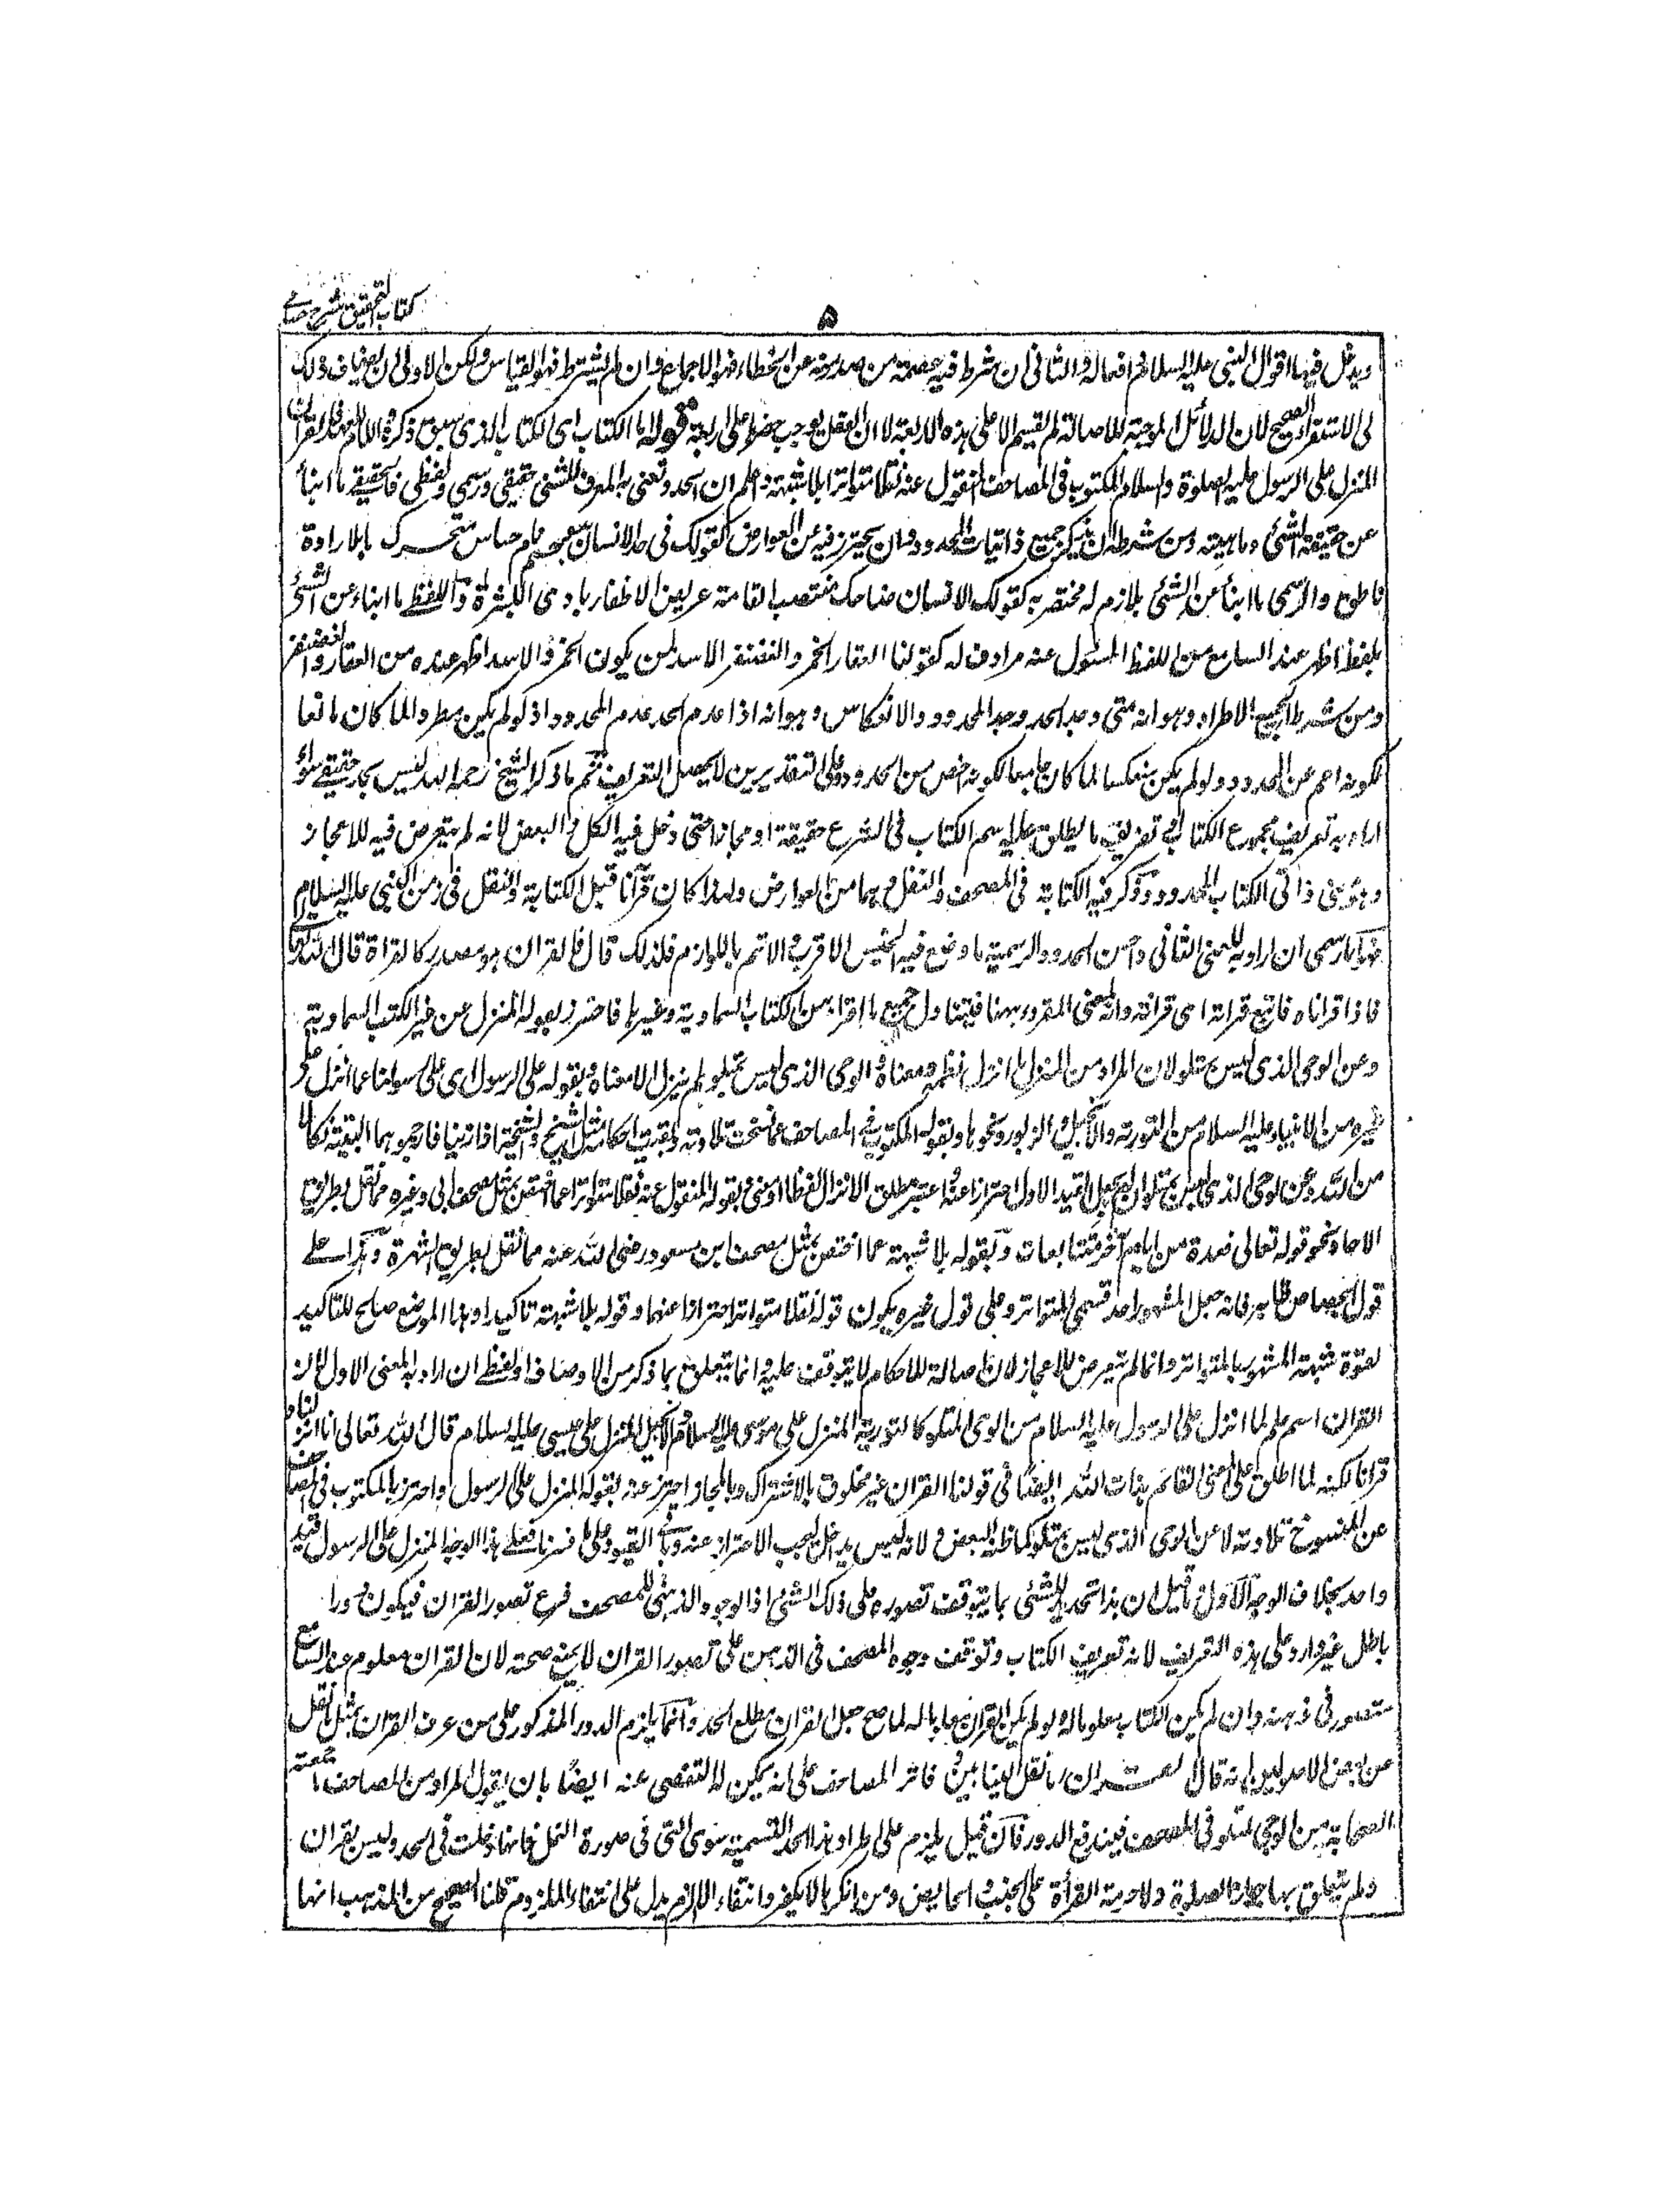 كتاب التحقيق شرح حسامى
۵
ويدخل فيها اقوال النبى عليه السلام و افعاله والثانى ان شرط فيه عصمة من صدر منه عن الخطاء فهو الاجماع وان لم يشترط فهو القياس ولكن الاولى ان يضاف ذلك
الى الاستقراء الصحيح لان الدلائل الموجبة للاصالة لم يقسم الا على هذه الاربعة لا ان العقل يوجب حصره على اربعة قوله اما الكتاب اى الكتاب الذى سبق ذكره واللام للعهد فالقران
المنزل على الرسول عليه الصلوة والسلام المكتوب فى المصاحف المنقول عنه نقلا متواترا بلا شبهة واعلم ان الحد ونعنى به المعرف للشئ حقيقى ورسمى ولفظى فالحقيقى ما انبأ
عن حقيقة الشئ وماهيته ومن شرطه ان يذكر جميع ذاتيات المحدود وان يحترز فيه عن العوارض كقولك فى حد الانسان جسم نام حساس متحرك بالارادة
ناطق والرسمى ما انبأ عن الشئ بلازم له مختص به كقولك الانسان ضاحك منتصب القامة عريض الاظفار بادى البشرة واللفظى ما انباء عن الشئ
بلفظ اظهر عند السامع من اللفظ المسئول عنه مرادف له كقولنا العقار الخمر والغضنفر الاسد لمن يكون الخمر والاسد اظهر عنده من العقار والغضنفر
ومن شرط الجميع الاطراد وهو انه متى وجد الحد وجد المحدود والانعكاس وهو انه اذا عدم الحد عدم المحدود اذ لو لم يكن مطردا لما كان مانعا
لكونه اعم عن المحدود ولو لم يكن منعكسا لما كان جامعا لكونه اخص من المحدود وعلى التقديرين لا يحصل التعريف ثم ما ذكر الشيخ رحمه الله ليس بحد حقيقى سواء
اراد به تعريف مجموع الكتاب او تعريف ما يطلق عليه اسم الكتاب فى الشرع حقيقة او مجازا حتى دخل فيه الكل والبعض لانه لم يتعرض فيه للاعجاز
وهو معنى ذاتى الكتاب المحدود وذكر فيه الكتابة فى المصحف والنقل وهما من العوارض ولهذا كان قرآنا قبل الكتابة والنقل فى زمن النبى عليه السلام
فهذا رسمى ان اراد به المعنى الثانى واحسن الحدود الرسمية ما وضع فيه الجنس الاقرب واتم باللوازم فلذلك قال فالقران هو مصدر كالقراة قال الله تعالى
فاذا قراناه فاتبع قرانه اى قرائته وانه بمعنى المقروء ههنا فيتناول جميع ما يقراء من الكتاب السماوية وغيرها فاحترز بقوله المنزل عن غير الكتب السماوية
وعن الوحى الذى ليس بمتلو لان المراد من المنزل ما انزل نظمه ومعناه والوحى الذى ليس بمتلو لم ينزل الا معناه وبقوله على الرسول اى على رسولنا عما انزل على
غيره من الانبياء عليه السلام من التورية والانجيل والزبور ونحوها وبقوله المكتوب فى المصاحف عما نسخت تلاوته وبقيت احكامه مثل الشيخ والشيخة اذا زنيا فارجموهما البتة نكالا
من الله وعن الوحى الذى ليس بمتلو ان لم يجعل القيد الاول احترازا عنه واعتبر مطلق الانزال لفظا او معنى وبقوله المنقول عنه نقلا متواترا عما اختص بمثل مصحف ابى وغيره مما نقل بطريق
الاحاد نحو قوله تعالى فعدة من ايام اخر متتابعات وبقوله بلا شبهة عما اختص بمثل مصحف ابن مسعود رضى الله عنه مما نقل بطريق الشهرة وهذا على
قول الجصاص ظاهر فانه جعل المشهور احد قسمى المتواتر وعلى قول غيره يكون قوله نقلا متواترا احترازا عنهما وقوله بلا شبهة تاكيدا وهذا الموضع صالح للتاكيد
لقوة شبهة المشهور بالمتواتر وانما لم يتعرض للاعجاز لان اصالة للاحكام لا يتوقف عليه وانما يتعلق بما ذكر من الاوصاف ولفظى ان اراد به المعنى الاول لان
القران اسم علم لما انزل على الرسول عليه السلام من الوحى المتلو كالتورية المنزل على موسى عليه السلام والانجيل المنزل على عيسى عليه السلام قال الله تعالى انا انزلناه
قرانا لكنه لما اطلق على المعنى القائم بذات الله ايضا فى قولنا القران غير مخلوق بالاشتراك وبالمجاز احترز عنه بقوله المنزل على الرسول واحترز بالمكتوب فى المصاحف
عن المنسوخ تلاوته لا عن الوحى الذى ليس بمتلو كما ظنه البعض لانه ليس بداخل ليجب الاحتراز عنه وباقى القيود على ما فسرنا فعلى هذا الوجه المنزل على الرسول قيد
واحد بخلاف الوجه الاول وما قيل ان هذا تحديد للشئ بما يتوقف تصوره على ذلك الشئ اذ الوجود الذهنى للمصحف فرع تصور القران فيكون دورا
باطل غير وارد على هذه التعريف لانه تعريف الكتاب وتوقف وجود المصحف فى الذهن على تصور القران لا يمنع صحته لان القران معلوم عند السامع
متصور فى ذهنه وان لم يكن الكتاب معلوما له ولو لم يكن القران معلوما له لما صح جعل القران مطلع الحد وانما يلزم الدور المذكور على من عرف القران بمثل ما نقل
عن بعض الاصوليين انه قال القران ما نقل الينا بين دفتى المصاحف على انه يمكن له التفصى عنه ايضا بان يقول المراد من المصاحف ما جمعته
الصحابة من الوحى المتلو فى المصحف فيندفع الدور فان قيل يلزم على اطراد هذا الحد التسمية سوى التى فى صورة النمل فانها دخلت فى الحد وليس بقران
ولم يتعلق بها جواز الصلوة ولا حرمة القرأة على الجنب والحايض ومن انكرها لا يكفر وانتفاء اللازم يدل على انتفاء الملزوم قلنا الصحيح من المذهب انها